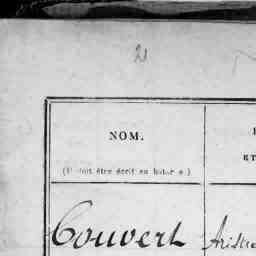 2
NOM.
(Il doit être écrit en bâtarde.)
Couvert Aristi